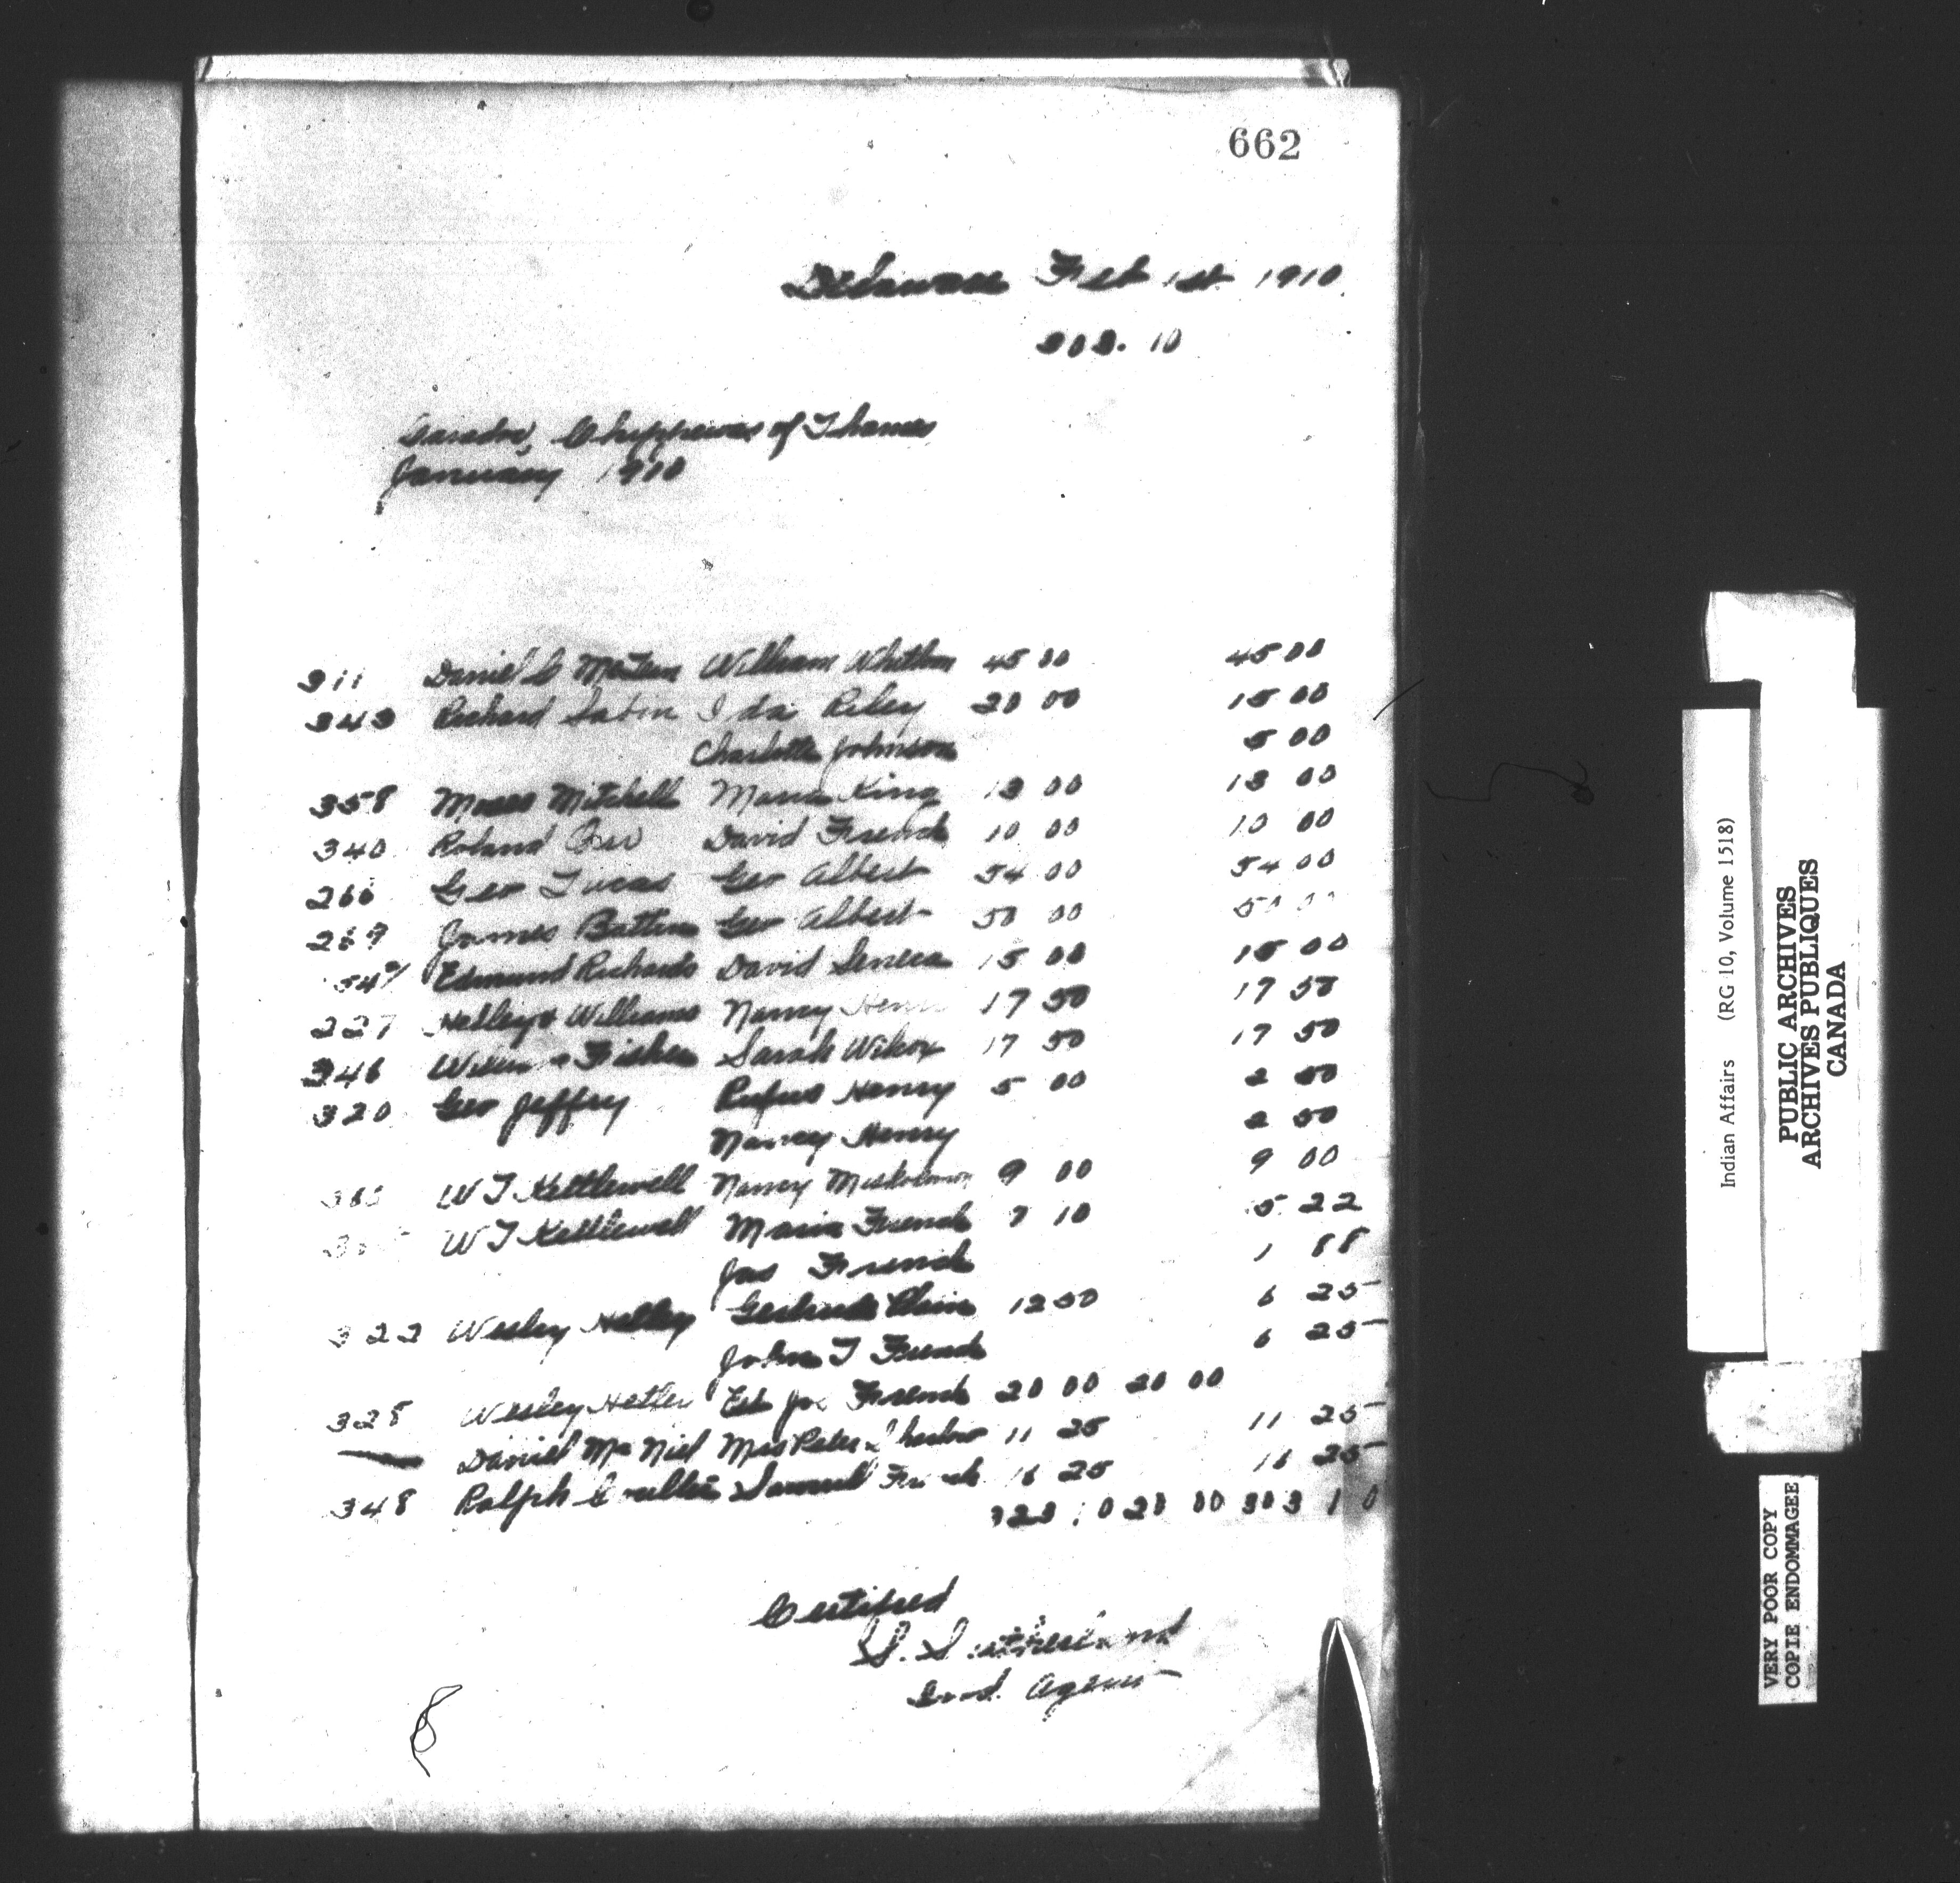 662
Delaware Feb 1st 1910
303. 10
Chippewas of Thames
January 1910
311 Daniel C William 45 00 45 00
343 Richard Ida Riley 20 00 15 00
Charlotte Johnson 5 00
358 Moses Mitchell Maria King 13 00 13 00
340 Roland David French 10 00 10 00
266 Geo Lucas Geo Albert 54 00 54 00
269 James Geo Albert 50 00 50 00
Edmund Richards David Seneca 15 00 15 00
227 Williams Nancy 17 50 17 50
346 Fisher Sarah Wilcox 17 50 17 50
320 Geo Jeffrey Rufus Henry 5 00 2 50
Nancy Henry 2 50
W T Kettlewell Nancy 9 00 9 00
W T Kettlewell Maria French 7 10 5 22
Jas French 1 88
322 Wesley Gertrude 12 50 6 25
John T French 6 25
328 Wesley French 20 00 20 00
Daniel McNiel Mrs Peter 11 25 11 25
348 Ralph Samuel French 16 25 16 25
323 10 20 00 303 10
Certified
S. Sutherland
Ind. Agent
Indian Affairs (RG 10, Volume 1518)
PUBLIC ARCHIVES
ARCHIVES PUBLIQUES
CANADA
VERY POOR COPY
COPIE ENDOMMAGEE